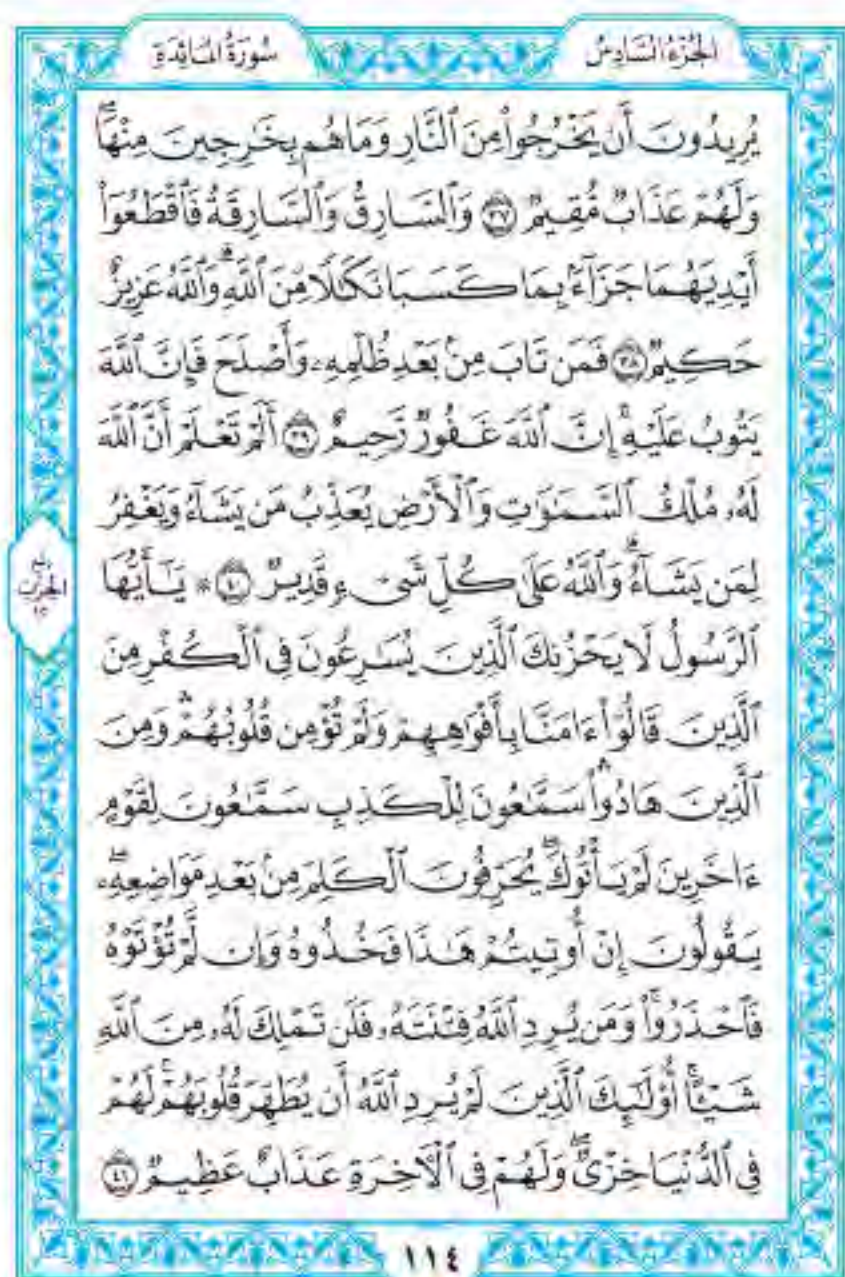 الجزء السادس
سورة المائدة
يُرِيدُونَ أَن يَخْرُجُوا۟ مِنَ ٱلنَّارِ وَمَا هُم بِخَٰرِجِينَ مِنْهَا ۖ
وَلَهُمْ عَذَابٌ مُّقِيمٌ ٣٧ وَٱلسَّارِقُ وَٱلسَّارِقَةُ فَٱقْطَعُوٓا۟
أَيْدِيَهُمَا جَزَآءًۢ بِمَا كَسَبَا نَكَٰلًا مِّنَ ٱللَّهِ ۗ وَٱللَّهُ عَزِيزٌ
حَكِيمٌ ٣٨ فَمَن تَابَ مِنۢ بَعْدِ ظُلْمِهِۦ وَأَصْلَحَ فَإِنَّ ٱللَّهَ
يَتُوبُ عَلَيْهِ ۗ إِنَّ ٱللَّهَ غَفُورٌ رَّحِيمٌ ٣٩ أَلَمْ تَعْلَمْ أَنَّ ٱللَّهَ
لَهُۥ مُلْكُ ٱلسَّمَٰوَٰتِ وَٱلْأَرْضِ يُعَذِّبُ مَن يَشَآءُ وَيَغْفِرُ
لِمَن يَشَآءُ ۗ وَٱللَّهُ عَلَىٰ كُلِّ شَىْءٍ قَدِيرٌ ٤٠ ۞ يَٰٓأَيُّهَا
ربع الحزب ١٢
ٱلرَّسُولُ لَا يَحْزُنكَ ٱلَّذِينَ يُسَٰرِعُونَ فِى ٱلْكُفْرِ مِنَ
ٱلَّذِينَ قَالُوٓا۟ ءَامَنَّا بِأَفْوَٰهِهِمْ وَلَمْ تُؤْمِن قُلُوبُهُمْ ۛ وَمِنَ
ٱلَّذِينَ هَادُوا۟ ۛ سَمَّٰعُونَ لِلْكَذِبِ سَمَّٰعُونَ لِقَوْمٍ
ءَاخَرِينَ لَمْ يَأْتُوكَ ۖ يُحَرِّفُونَ ٱلْكَلِمَ مِنۢ بَعْدِ مَوَاضِعِهِۦ ۖ
يَقُولُونَ إِنْ أُوتِيتُمْ هَٰذَا فَخُذُوهُ وَإِن لَّمْ تُؤْتَوْهُ
فَٱحْذَرُوا۟ ۚ وَمَن يُرِدِ ٱللَّهُ فِتْنَتَهُۥ فَلَن تَمْلِكَ لَهُۥ مِنَ ٱللَّهِ
شَيْـًٔا ۚ أُو۟لَٰٓئِكَ ٱلَّذِينَ لَمْ يُرِدِ ٱللَّهُ أَن يُطَهِّرَ قُلُوبَهُمْ ۚ لَهُمْ
فِى ٱلدُّنْيَا خِزْىٌ ۖ وَلَهُمْ فِى ٱلْءَاخِرَةِ عَذَابٌ عَظِيمٌ ٤١
١١٤